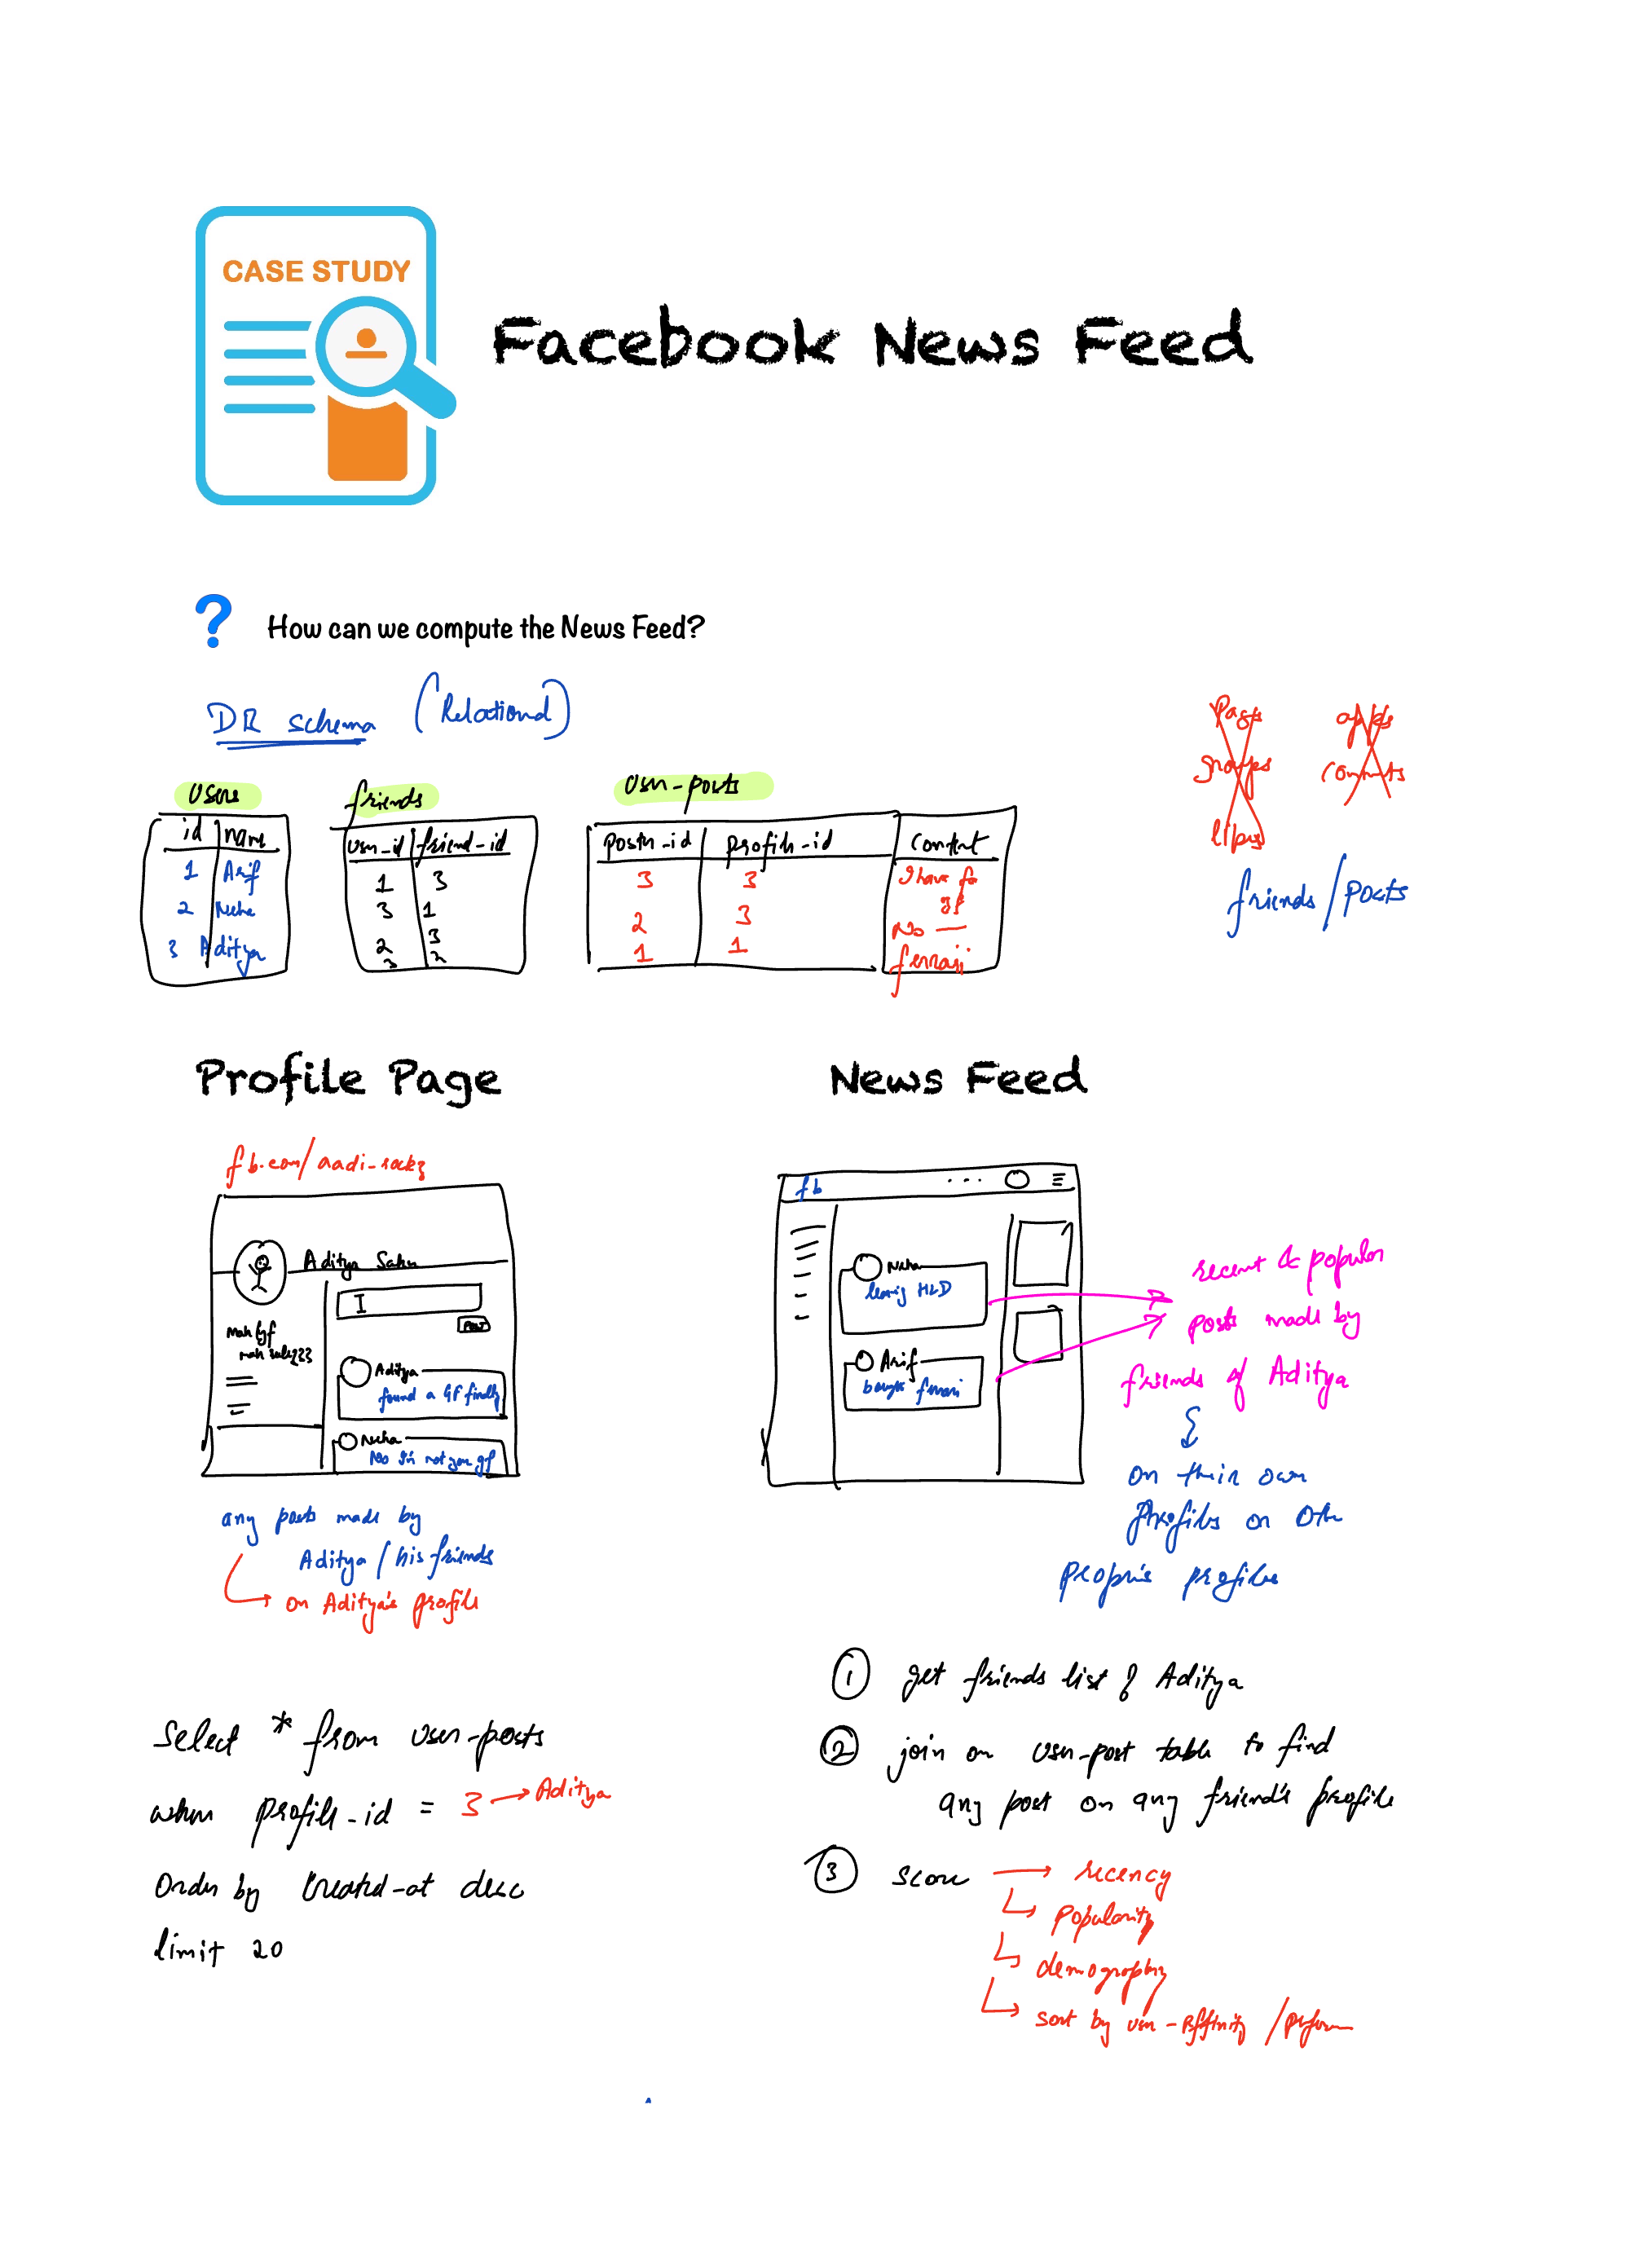 CASE STUDY
Facebook News Feed
? How can we compute the News Feed?
DB schema (Relational)
Pages apps
groups comments
likes
friends/Posts
Users
id name
1 Arif
2 Neha
3 Aditya
friends
user_id friend_id
1 3
3 1
2 3
3 2
User_posts
poster_id profile_id Content
3 3 I have
gf
2 3 No
1 1 ferrari
Profile Page
fb.com/aadi-rockz
Aditya Sahu
I
Post
Mah lyf
mah rulezzz
Aditya
found a GF finally
Neha
No I'm not your gf
any posts made by
Aditya / his friends
on Aditya's profile
Select * from user_posts
where profile_id = 3 → Aditya
Order by created_at desc
limit 20
News Feed
fb
Neha
learning HLD
Arif
bought ferrari
recent & popular
posts made by
friends of Aditya
on their own
profiles or other
people's profiles
1 get friends list of Aditya
2 join on user_post table to find
any post on any friend's profile
3 Score → recency
popularity
demography
sort by user-affinity /